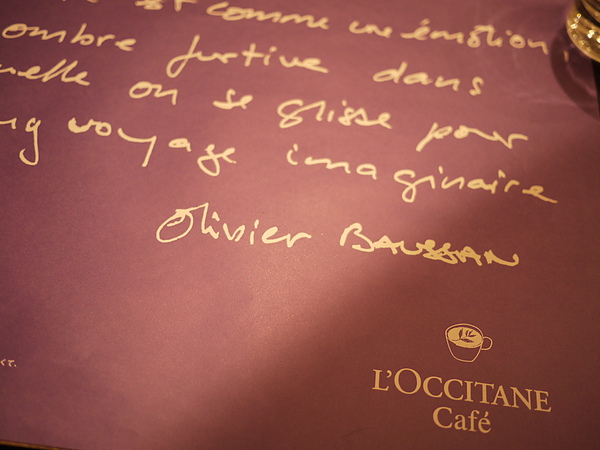 est comme une émotion
ombre furtive dans
on se glisse pour
voyage imaginaire
Olivier BAUSSAN
L'OCCITANE
Café